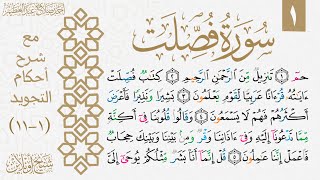 ١
سُورَةُ فُصِّلَتْ
مع
شرح
أحكام
التجويد
(١-١١)
حمٓ ١ تَنزِيلٌ مِّنَ ٱلرَّحْمَٰنِ ٱلرَّحِيمِ ٢ كِتَٰبٌ فُصِّلَتْ
ءَايَٰتُهُۥ قُرْءَانًا عَرَبِيًّا لِّقَوْمٍ يَعْلَمُونَ ٣ بَشِيرًا وَنَذِيرًا فَأَعْرَضَ
أَكْثَرُهُمْ فَهُمْ لَا يَسْمَعُونَ ٤ وَقَالُوا۟ قُلُوبُنَا فِىٓ أَكِنَّةٍ
مِّمَّا تَدْعُونَآ إِلَيْهِ وَفِىٓ ءَاذَانِنَا وَقْرٌ وَمِنۢ بَيْنِنَا وَبَيْنِكَ حِجَابٌ
فَٱعْمَلْ إِنَّنَا عَٰمِلُونَ ٥ قُلْ إِنَّمَآ أَنَا۠ بَشَرٌ مِّثْلُكُمْ يُوحَىٰٓ إِلَىَّ